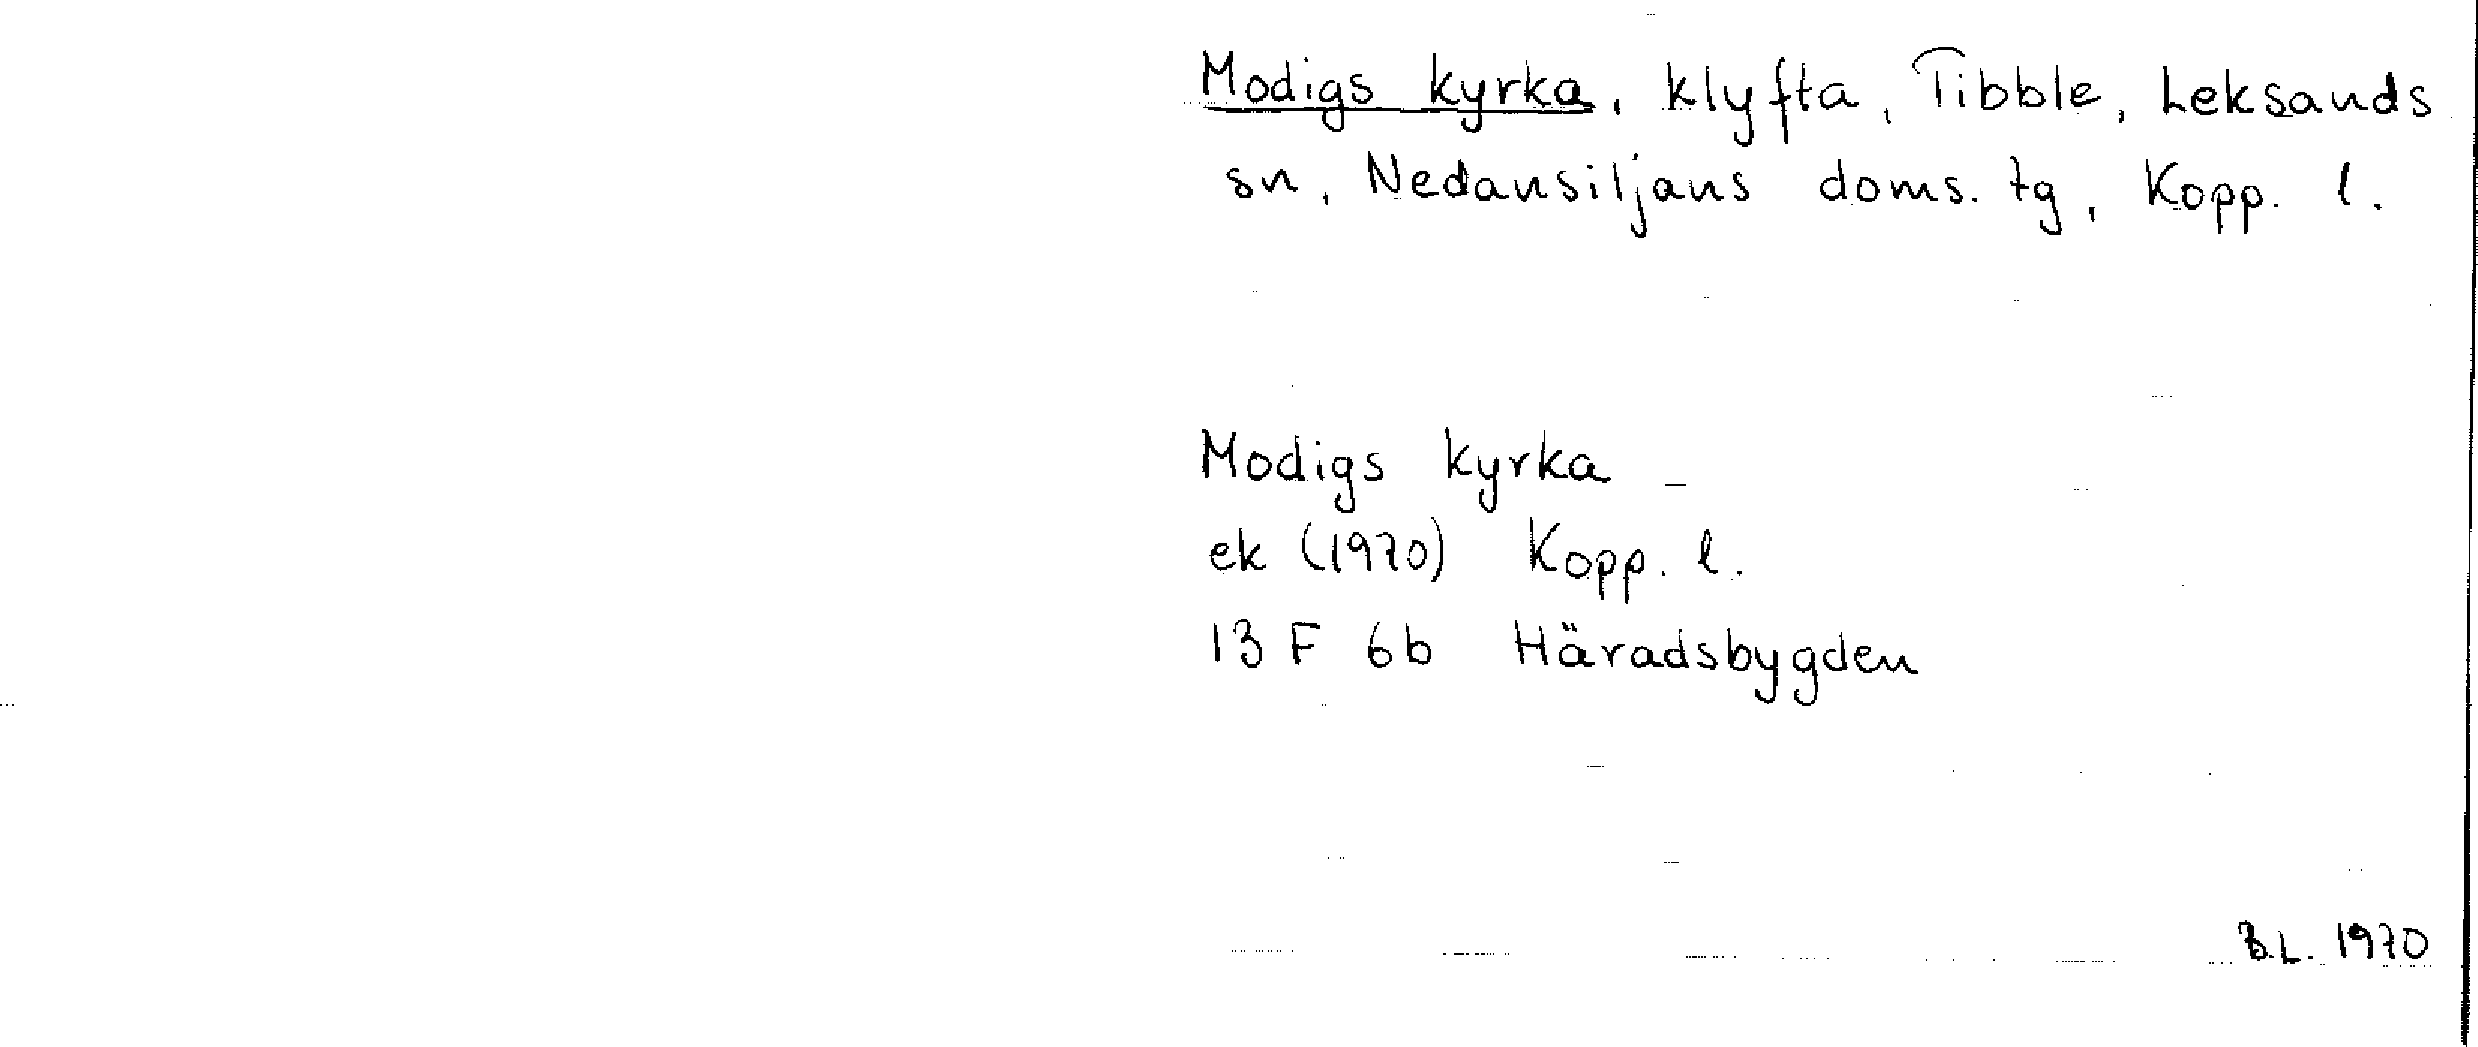 Modigs kyrka, klyfta, Tibble, Leksands
sn, Nedansiljans doms. tg, Kopp. l.
Modigs kyrka
ek (1970) Kopp. l.
13 F 6b Häradsbygden
B.L. 1970